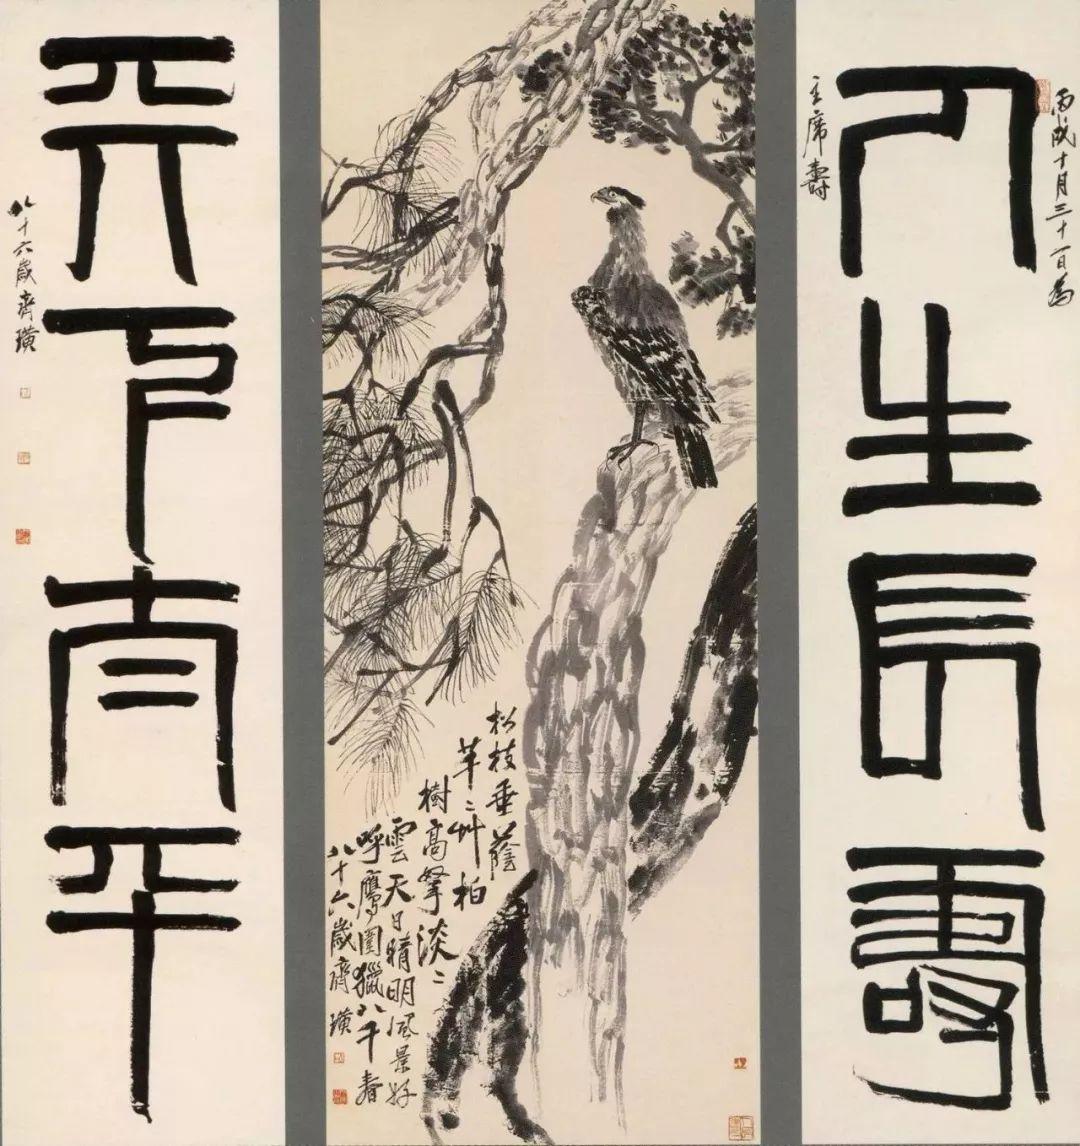 丙戌十月三十一日為
人生長壽
主席壽
松枝垂蔭
芊〻艸柏
樹高拏淡〻
雲天日晴明風景好
呼鷹圍獵八千春
八十六歲齊璜
天下太平
八十六歲齊璜